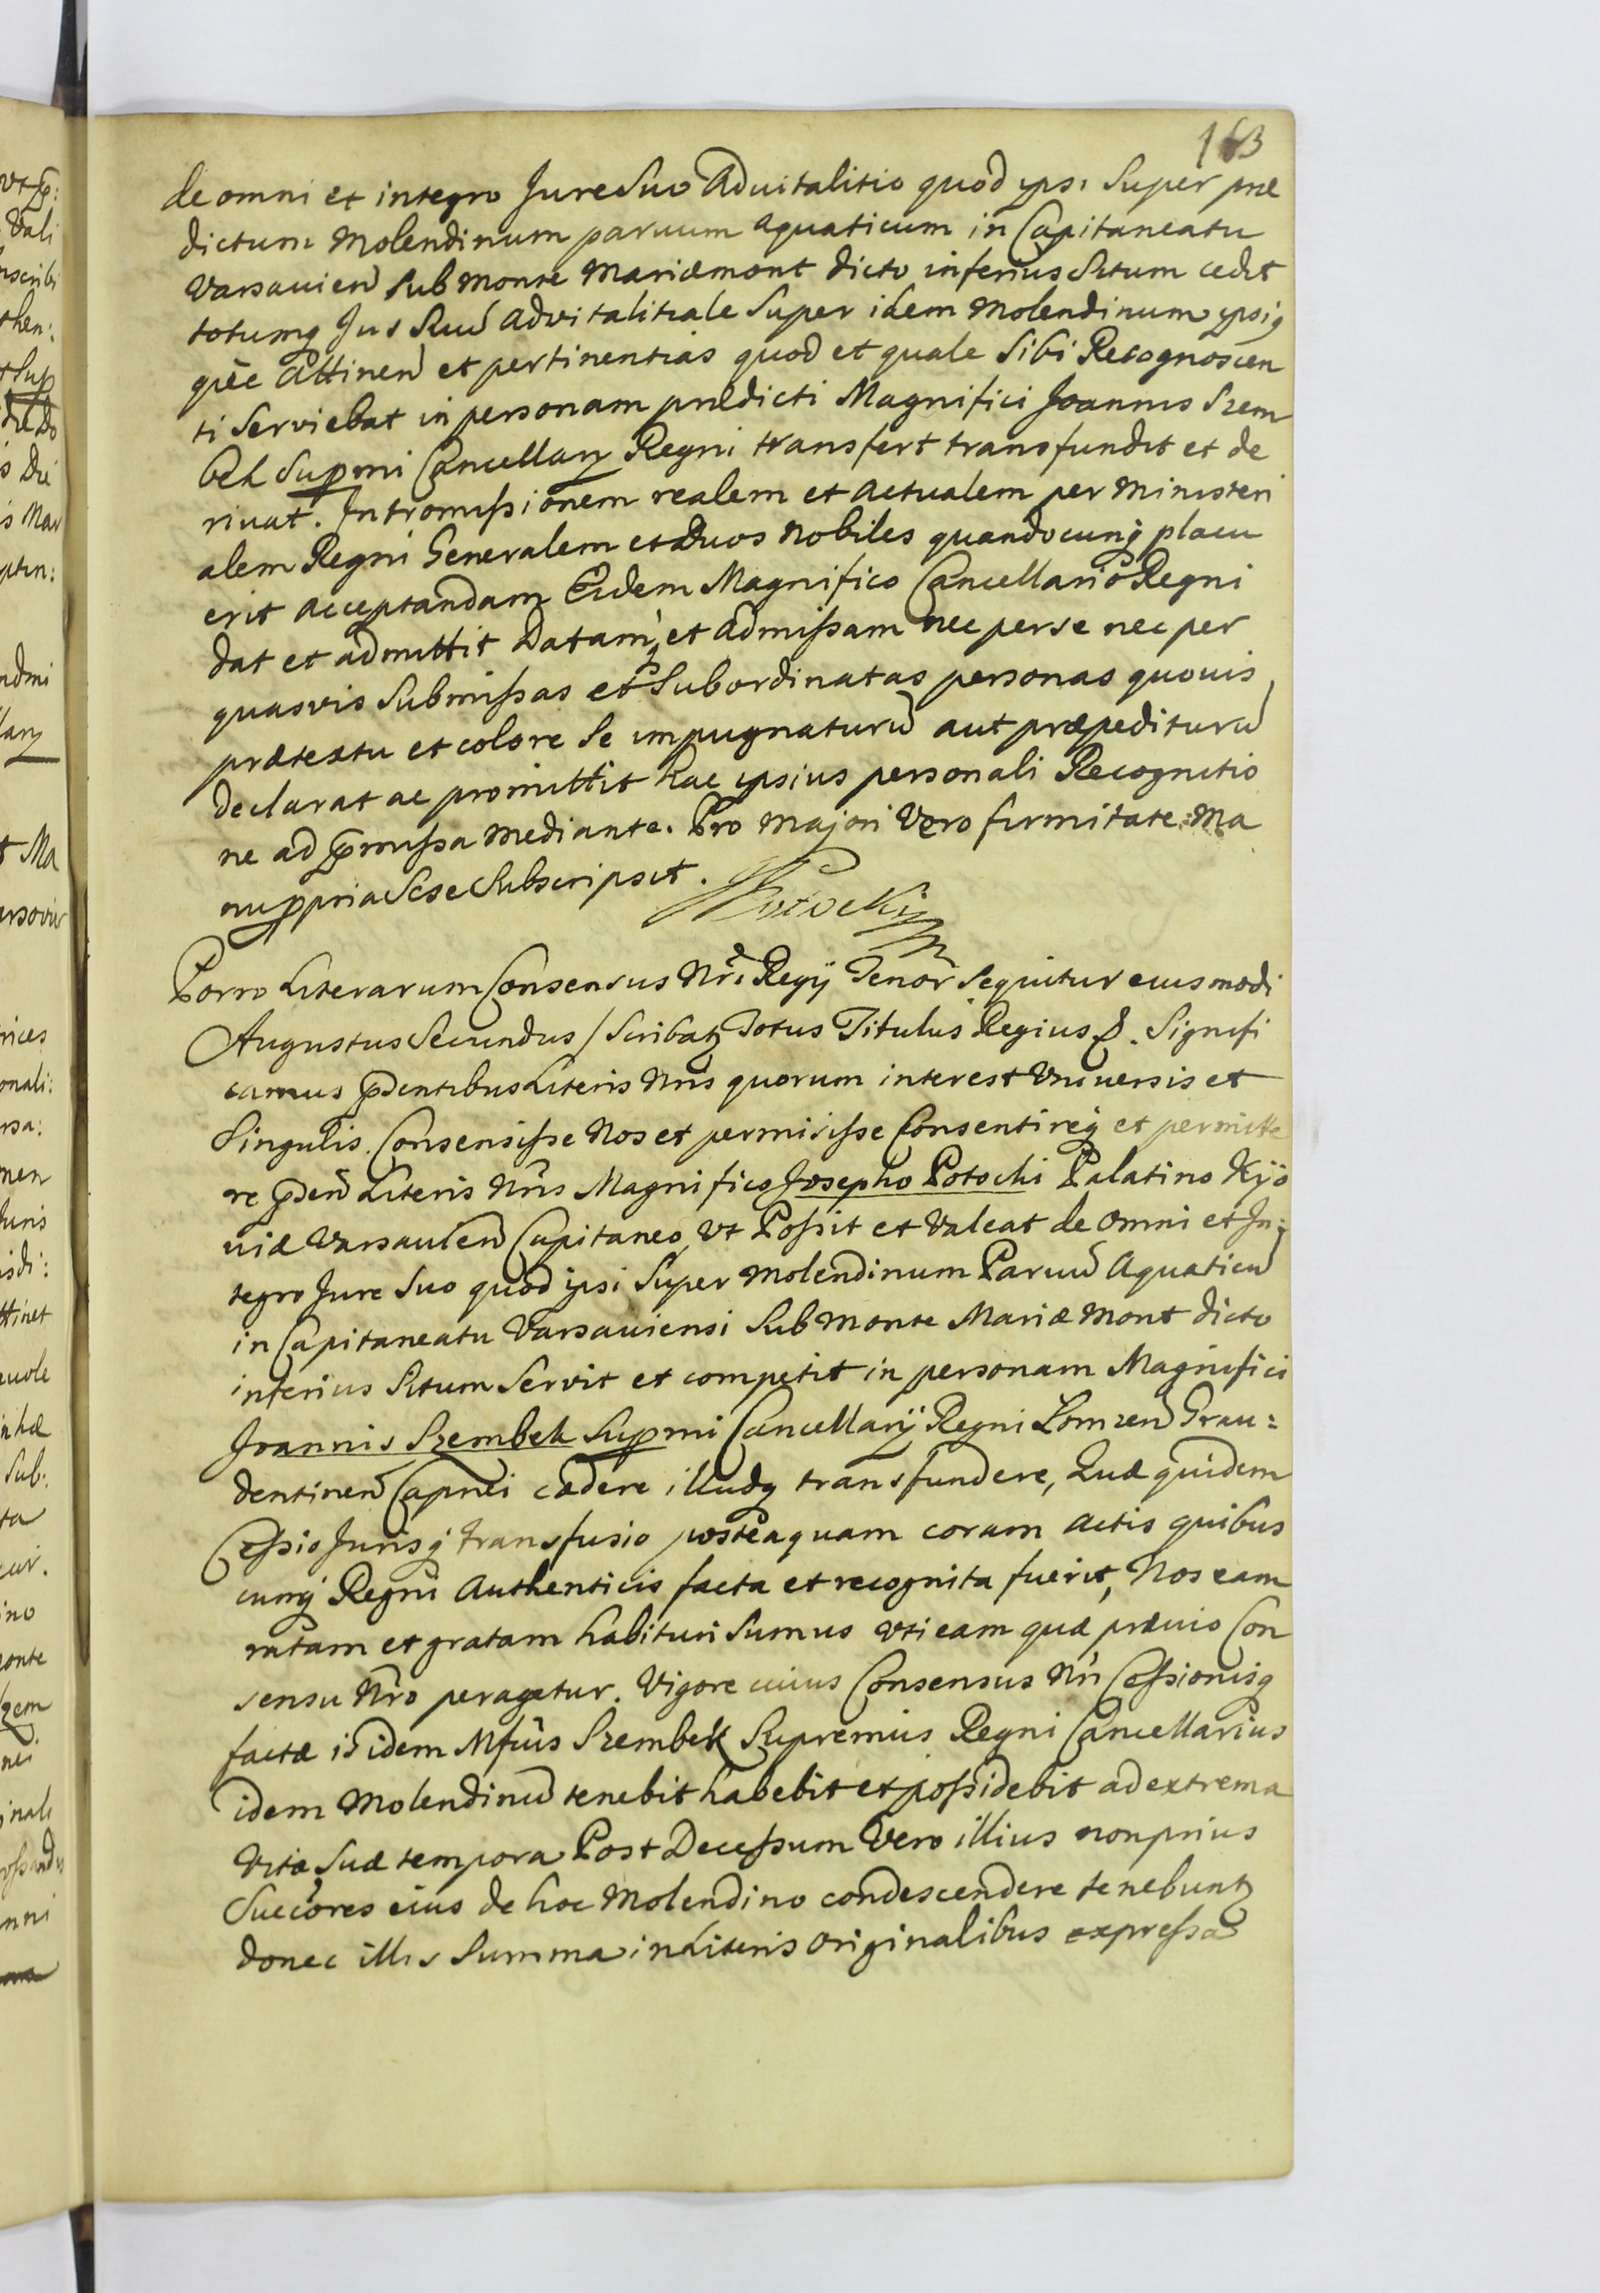 163
de omni et integro Jure Suo Aduitalitio quod ipsi Super præ
dictum Molendinum paruum aquaticum in Capitaneatu
Varsauien Sub Monte Mariæmont dicto inferius Situm cedit
totumq Jus Suū advitalitiale Super idem Molendinum ipsiq
attinen et pertinentias quod et quale Sibi Recognoscen
ti Serviebat in personam prædicti Magnifici Joannis Szem
bek Supmi Cancellarij Regni transfert transfundit et de
rivat. Intromissionem realem et actualem per Ministeri
alem Regni Generalem et duos Nobiles quandocunq placu
erit acceptandam Eidem Magnifico Cancellario Regni
dat et admittit Datamq et admissam nec per se nec per
quasvis Submissas et Subordinatas personas quouis
prætextu et colore Se impugnaturū aut præpediturū
declarat ac promittit hac ipsius personali Recognitio
ne ad præmissa mediante. Pro Majori Vero firmitate Ma
nu ppria Sese Subscripsit. Potocki
Porro Literarum Consensus Nri Regij Tenor Sequitur eiusmodi
Augustus Secundus / Scribatz Totus Titulus Regius &. Signifi
camus pæsentibus Literis Nris quorum interest Vniuersis et
Singulis. Consensisse Nos et permisisse Consentireq et permitte
re pæsen Literis Nris Magnifico Josepho Potocki Palatino Kijo
uiæ Varsauien Capitaneo, Vt Possit et Valeat de Omni et In=
tegro Jure Suo quod ipsi Super Molendinum Paruū Aquaticū
in Capitaneatu Varsauiensi Sub Monte Mariæ Mont dicto
inferius Situm Servit et competit in personam Magnifici
Joannis Szembek Supmi Cancellarij Regni Lomzen Grau=
dentinen Capnei cædere illudq transfundere, Quæ quidem
Cessio Jurisq transfusio posteaquam coram actis quibus
cunq Regni Authenticis facta et recognita fuerit, Nos eam
ratam et gratam habituri Sumus Vti eam quæ præuio Con
sensu Nro peragetur. Vigore cuius Consensus Nri Cessionisq
factæ is idem Mfcus Szembek Supremus Regni Cancellarius
idem Molendinū tenebit habebit et possidebit ad extrema
Vitæ Suæ tempora Post Decessum Vero illius non prius
Succores eius de hoc Molendino condescendere tenebuntz
donec illis Summa in Literis Originalibus expressa